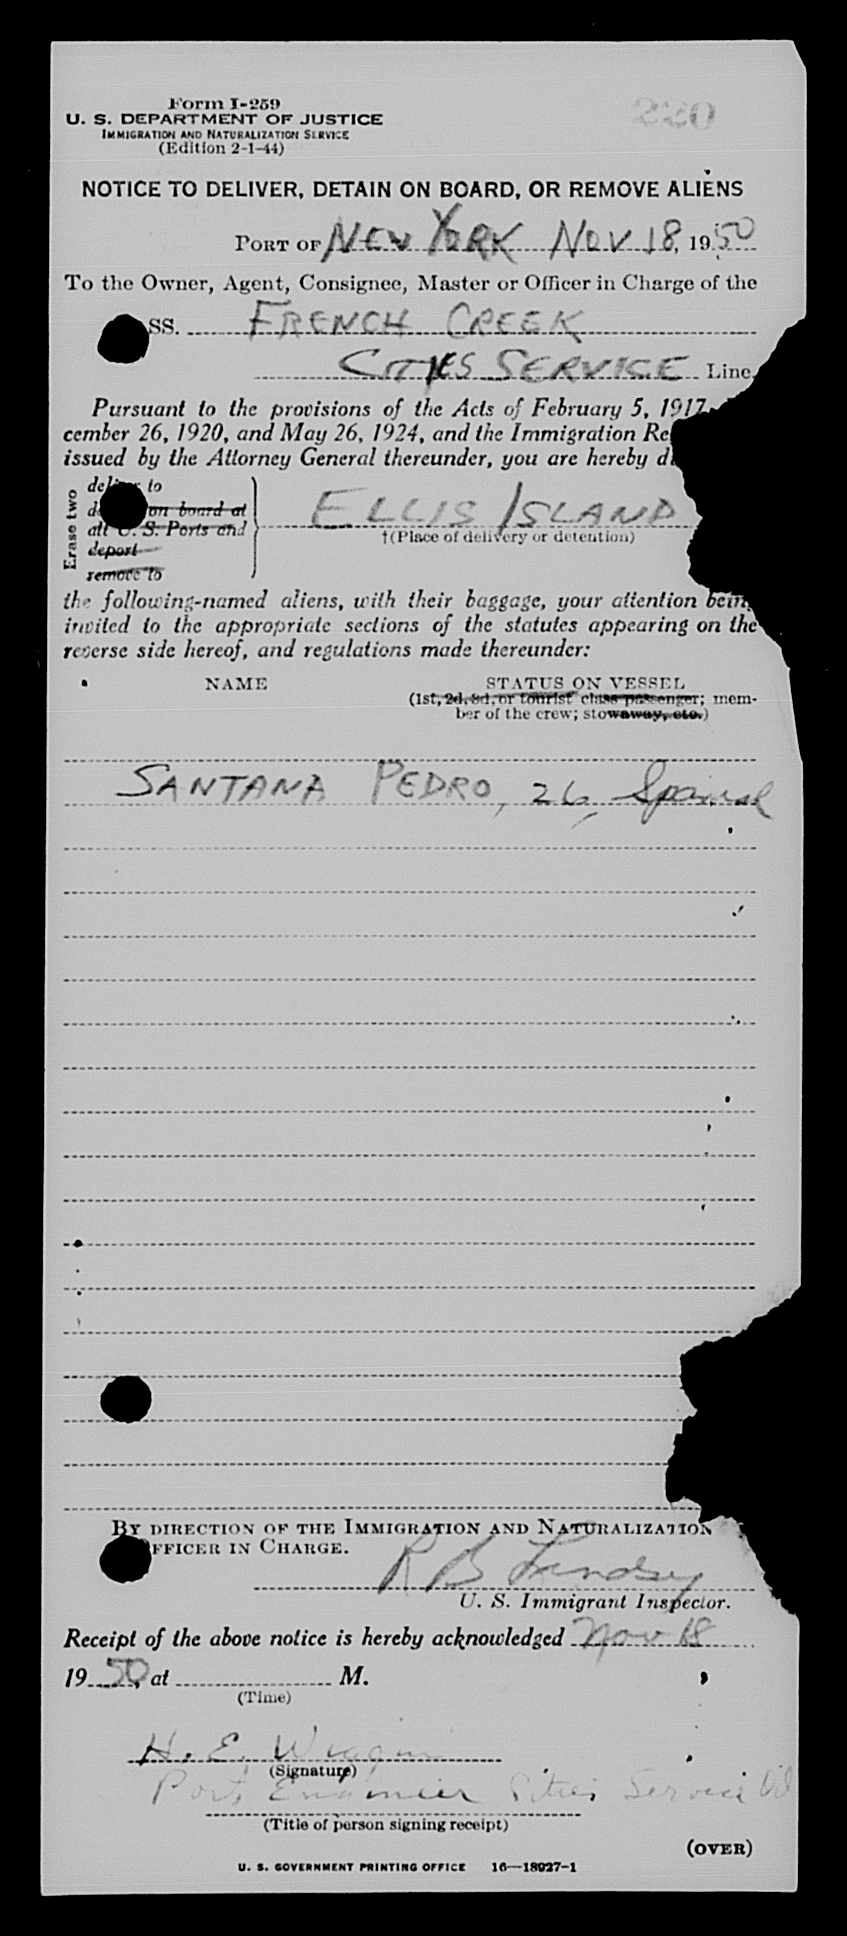 Form I-259
220
U. S. DEPARTMENT OF JUSTICE
IMMIGRATION AND NATURALIZATION SERVICE
(Edition 2-1-44)
NOTICE TO DELIVER, DETAIN ON BOARD, OR REMOVE ALIENS
PORT OF NEW YORK NOV 18, 1950
To the Owner, Agent, Consignee, Master or Officer in Charge of the
SS. FRENCH CREEK
CITIES SERVICE Line
Pursuant to the provisions of the Acts of February 5, 1917
cember 26, 1920, and May 26, 1924, and the Immigration Re
issued by the Attorney General thereunder, you are hereby di
Erase two
deliver to
d on board at
all U. S. Ports and
deport
remove to
ELLIS ISLAND
†(Place of delivery or detention)
the following-named aliens, with their baggage, your attention being
invited to the appropriate sections of the statutes appearing on the
reverse side hereof, and regulations made thereunder:
NAME STATUS ON VESSEL
(1st, 2d, 3d, or tourist class passenger; mem-
ber of the crew; stowaway, etc.)
SANTANA PEDRO, 26, Spanish
BY DIRECTION OF THE IMMIGRATION AND NATURALIZATION
OFFICER IN CHARGE.
R B Lindsey
U. S. Immigrant Inspector.
Receipt of the above notice is hereby acknowledged Nov 18
1950, at M.
(Time)
H. E. Wiggin
(Signature)
Port Engineer Cities Service Oil
(Title of person signing receipt)
(OVER)
U. S. GOVERNMENT PRINTING OFFICE 16—18927-1